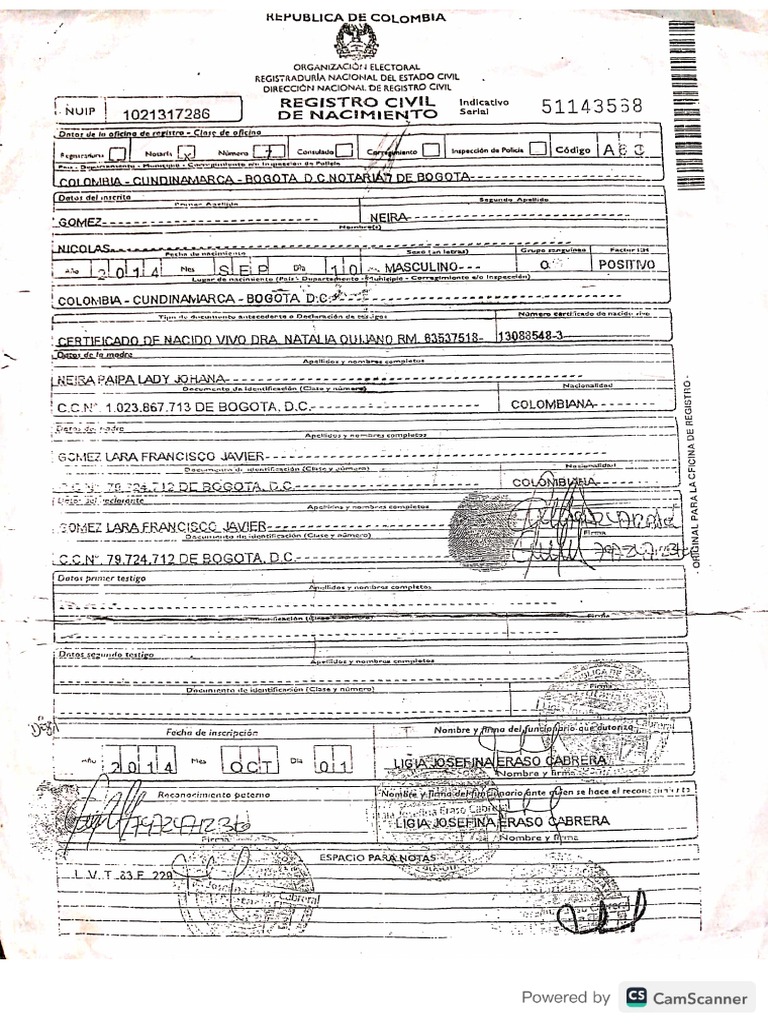 REPUBLICA DE COLOMBIA
ORGANIZACIÓN ELECTORAL
REGISTRADURÍA NACIONAL DEL ESTADO CIVIL
DIRECCIÓN NACIONAL DE REGISTRO CIVIL
NUIP 1021317286
REGISTRO CIVIL DE NACIMIENTO
Indicativo Serial 51143568
Datos de la oficina de registro - Clase de oficina
Registraduría Notaría X Número 7 Consulado Corregimiento Inspección de Policía Código A
País - Departamento - Municipio - Corregimiento e/o Inspección de Policía
COLOMBIA - CUNDINAMARCA - BOGOTA D.C. NOTARIA 7 DE BOGOTA
Datos del inscrito
Primer Apellido Segundo Apellido
GOMEZ NEIRA
Nombre(s)
NICOLAS
Fecha de nacimiento Sexo (en letras) Grupo sanguíneo Factor RH
Año 2014 Mes SEP Día 10 MASCULINO O POSITIVO
Lugar de nacimiento (País - Departamento - Municipio - Corregimiento e/o Inspección)
COLOMBIA - CUNDINAMARCA - BOGOTA D.C.
Tipo de documento antecedente o Declaración de testigos Número certificado de nacido vivo
CERTIFICADO DE NACIDO VIVO DRA. NATALIA QUIJANO RM. 63537518- 13088548-3
Datos de la madre
Apellidos y nombres completos
NEIRA PAIPA LADY JOHANA
Documento de identificación (Clase y número) Nacionalidad
C.C.N°. 1.023.867.713 DE BOGOTA, D.C. COLOMBIANA
Datos del padre
Apellidos y nombres completos
GOMEZ LARA FRANCISCO JAVIER
Documento de identificación (Clase y número) Nacionalidad
C.C.N°. 79.724.712 DE BOGOTA, D.C. COLOMBIANA
Datos del declarante
Apellidos y nombres completos
GOMEZ LARA FRANCISCO JAVIER
Documento de identificación (Clase y número) Firma
C.C.N°. 79.724.712 DE BOGOTA, D.C.
Datos primer testigo
Apellidos y nombres completos
Documento de identificación (Clase y número) Firma
Datos segundo testigo
Apellidos y nombres completos
Documento de identificación (Clase y número) Firma
Fecha de inscripción Nombre y firma del funcionario que autoriza
Año 2014 Mes OCT Día 01 LIGIA JOSEFINA ERASO CABRERA
Nombre y firma
Reconocimiento paterno Nombre y firma del funcionario ante quien se hace el reconocimiento
LIGIA JOSEFINA ERASO CABRERA
Firma Nombre y firma
ESPACIO PARA NOTAS
L.V.T. 83 F. 229
- ORIGINAL PARA LA OFICINA DE REGISTRO -
Powered by CS CamScanner